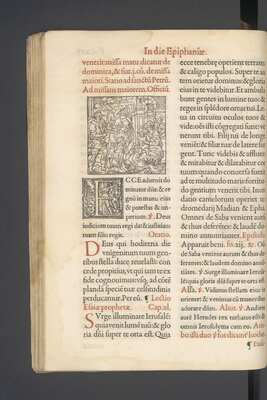 In die Epiphaniæ.
venerit missa matu dicatur de
dominica, & fiat .j. cõ. de missa
maiori. Statio ad sanctũ Petrũ.
Ad missam maiorem. Officiũ.
CCE aduenit do
minator dñs: & re
gnũ in manu eius
& potestas & im
perium. ℣. Deus
iudicium tuum regi da: & iusticiam
tuam filio regis. Oratio.
DEus qui hodierna die
vnigenitum tuum gen
tibus stella duce reuelasti: con
cede propitius, vt qui iam te ex
fide cognouimus: vsq; ad cõtẽ
plandã speciẽ tuæ celsitudinis
perducamur. Per eũ. ¶ Lectio
Esaiæ prophetæ. Cap. lx.
SVrge illuminare Ierusalẽ:
quia venit lumẽ tuũ: & glo
ria dñi super te orta est. Quia
ecce tenebræ operient terram:
& caligo populos. Super te au
tem orietur dominus: & gloria
eius in te videbitur. Et ambula
bunt gentes in lumine tuo: &
reges in splẽdore ortus tui. Le
ua in circuitu oculos tuos &
vide: oẽs isti cõgregati sunt: ve
nerunt tibi. Filij tui de longe
veniẽt: & filiæ tuæ de latere sur
gent. Tunc videbis & afflues:
& mirabitur & dilatabitur cor
tuum: quando conuersa fuerit
ad te multitudo maris: fortitu
do gentium venerit tibi. Inun
datio camelorum operiet te:
dromedarij Madian & Epha.
Omnes de Saba venient aurũ
& thus deferentes: & laudem
domino annunciantes.
Apparuit beni. fo. iij.
de Saba venient aurum & thus de
ferentes: & laudem domino annũci
antes. ℣. Surge illuminare Ieru
salẽ: quia gloria dñi super te orta est
Alla. ℣. Vidimus stellam eius in
oriente: & venimus cũ muneribus
adorare dominũ.